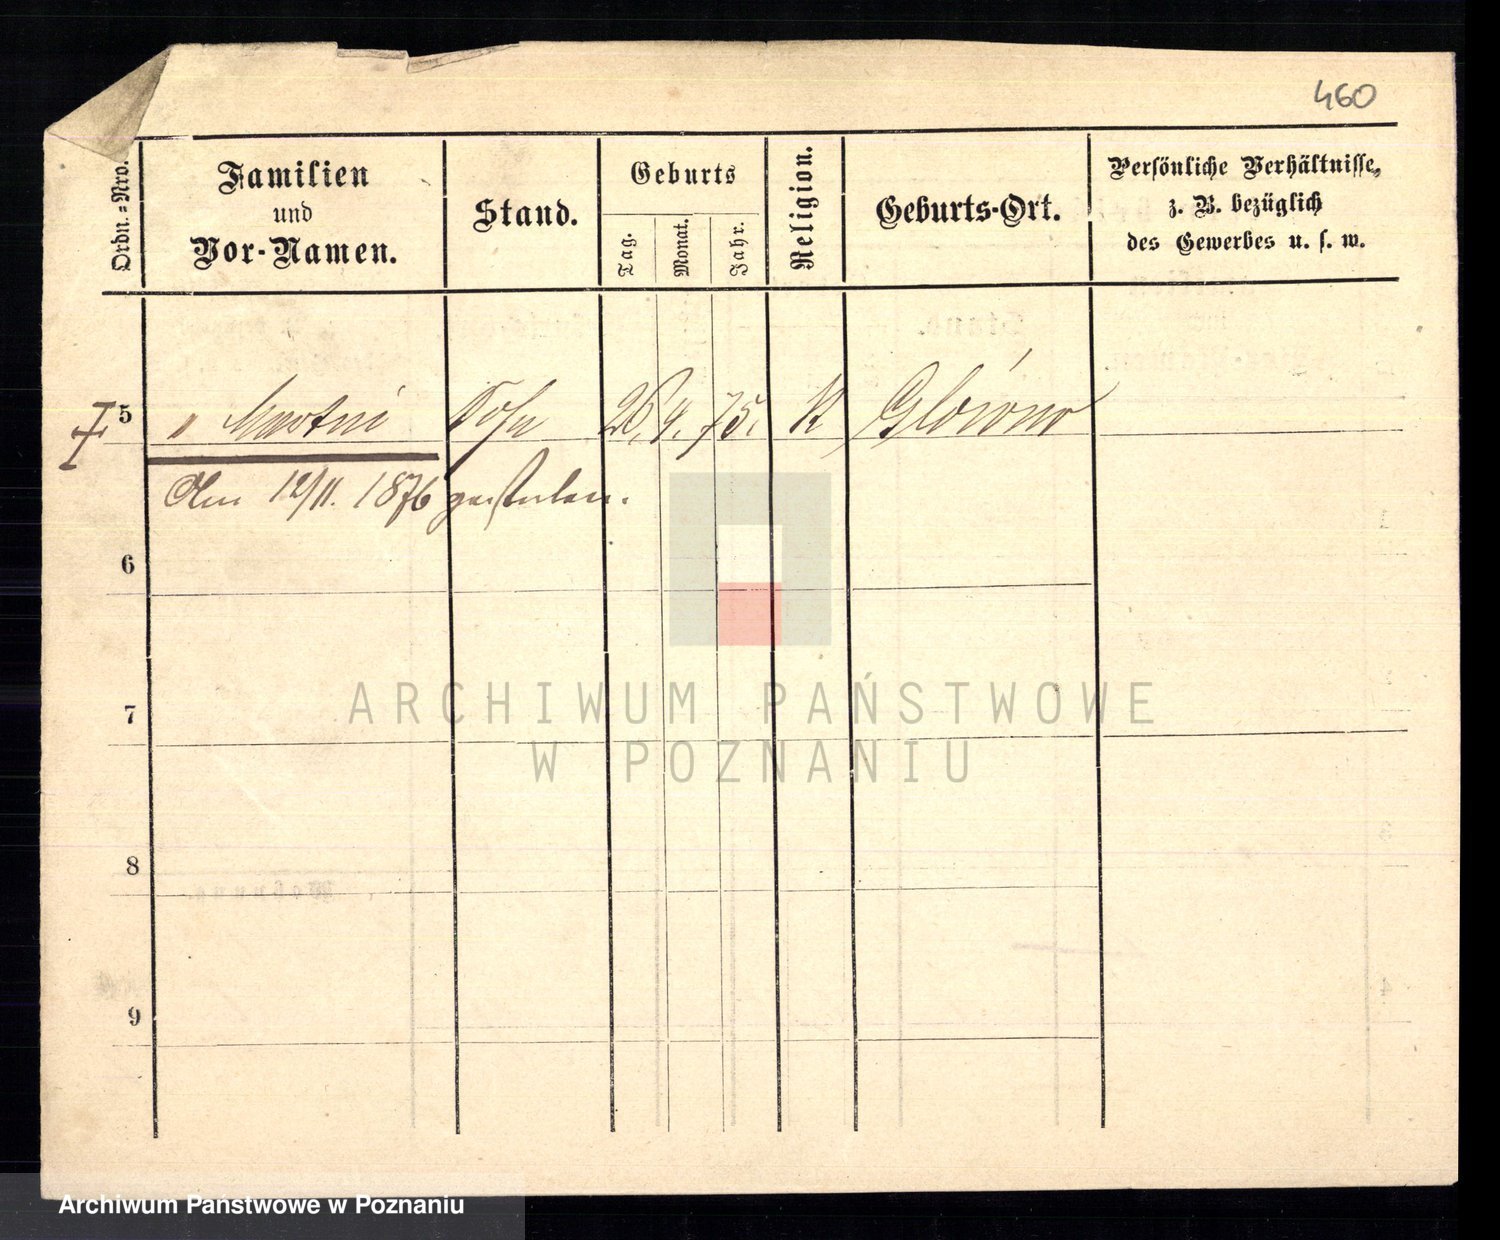 460
Ordn.-Nro.
Familien
und
Vor-Namen.
Stand.
Geburts
Tag.
Monat.
Jahr.
Religion.
Geburts-Ort.
Persönliche Verhältnisse,
z. B. bezüglich
des Gewerbes u. s. w.
5 " Sohn 26. 4. 75. K Glówno
Am 12/11. 1876 gestorben.
6
7
8
9
ARCHIWUM PAŃSTWOWE
W POZNANIU
Archiwum Państwowe w Poznaniu